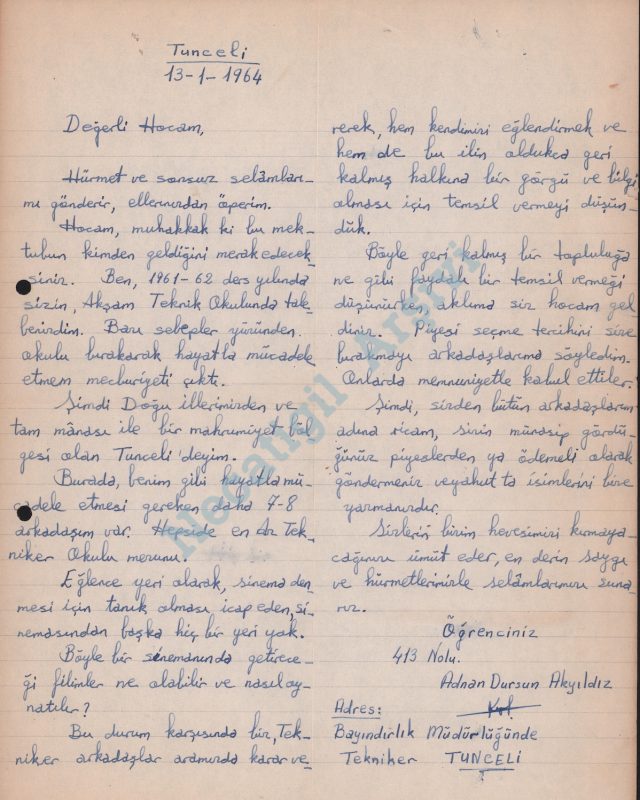 Tunceli
13-1-1964
Değerli Hocam,
Hürmet ve sonsuz selâmları-
mı gönderir, ellerinizden öperim.
Hocam, muhakkak ki bu mek-
tubun kimden geldiğini merak edecek-
siniz. Ben, 1961-62 ders yılında
sizin, Akşam Teknik Okulunda tale-
benizdim. Bazı sebepler yüzünden
okulu bırakarak hayatla mücadele
etmem mecburiyeti çıktı.
Şimdi Doğu illerimizden ve
tam mânası ile bir mahrumiyet böl-
gesi olan Tunceli'deyim.
Burada, benim gibi hayatla mü-
cadele etmesi gereken daha 7-8
arkadaşım var. Hepside en Az Tek-
niker Okulu mezunu.
Eğlence yeri olarak, sinema den-
mesi için tanık olması icap eden, si-
nemasından başka hiç bir yeri yok.
Böyle bir sinemanında getirece-
ği filimler ne olabilir ve nasıl oy-
natılır?
Bu durum karşısında biz, Tek-
niker arkadaşlar aramızda karar ve-
rerek, hem kendimizi eğlendirmek ve
hem de bu ilin oldukca geri
kalmış halkına bir görgü ve bilgi
olması için temsil vermeyi düşün-
dük.
Böyle geri kalmış bir topluluğa
ne gibi faydalı bir temsil vermeği
düşünürken, aklıma siz hocam gel
diniz. Piyesi seçme tercihini size
bırakmayı arkadaşlarıma söyledim.
Onlarda memnuniyetle kabul ettiler.
Şimdi, sizden bütün arkadaşlarım
adına ricam, sizin münasip gördü-
ğünüz piyeslerden ya ödemeli olarak
göndermeniz veyahut ta isimlerini bize
yazmanızdır.
Sizlerin bizim hevesimizi kırmaya-
cağınızı ümüt eder, en derin saygı
ve hürmetlerimizle selâmlarımızı suna-
rız.
Öğrenciniz
413 Nolu.
Adnan Dursun Akyıldız
Adres:
Bayındırlık Müdürlüğünde
Tekniker TUNCELİ
Necatigil Arşivi